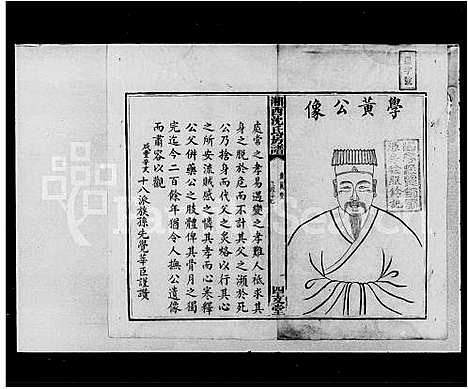 學黃公像
處常之孝易遇變之孝難人祗求其
身之脫於危而不計其父之瀕於死
公乃捨身而代父之炙烙以行其心
之所安流賊感之憐其孝而心寒釋
公父併藥公之肢體俾其骨月之獨
完迄今二百餘年猶令人撫公遺像
而肅容以觀
咸豐辛亥十八派族孫先覺華臣謹讚
湘西沈氏房譜
四支堂